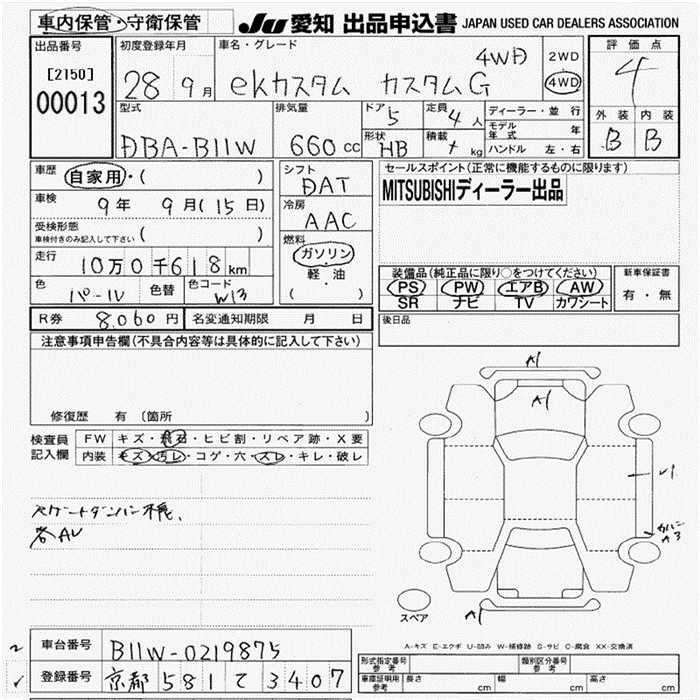 車内保管・守衛保管
JU 愛知 出品申込書 JAPAN USED CAR DEALERS ASSOCIATION
出品番号
[2150]
00013
初度登録年月
28 9月
車名・グレード
4WD
ekカスタム カスタムG
2WD
4WD
評価点
4
外装 内装
B B
型式
DBA-B11W
排気量
660 cc
ドア 5
定員 4人
形状 HB
積載 kg
ディーラー・並行
モデル年式 年
ハンドル 左・右
車歴 自家用・( )
車検 9年 9月(15日)
受検形態
車検付きのみ記入して下さい ( )
走行
10万0千618km
色 パール 色替 色コード W13
シフト
DAT
冷房
AAC
燃料
ガソリン
・
軽・油
( )
セールスポイント(正常に機能するものに限ります)
MITSUBISHIディーラー出品
装備品(純正品に限り○をつけてください)
PS PW エアB AW
SR ナビ TV カワシート
新車保証書
有・無
R券 8,060円 名変通知期限 月 日
後日品
注意事項申告欄(不具合内容等は具体的に記入して下さい)
修復歴 有 (箇所 )
検査員記入欄
FW キズ・飛石・ヒビ割・リペア跡・X要
内装 キズ・汚レ・コゲ・穴・スレ・キレ・破レ
各AU
A1
A1
A3
A1
スペア
A-キズ E-エクボ U-凹み W-補修跡 S-サビ C-腐食 XX-交換済
2 車台番号 B11W-0219875
登録番号 京都 581 て 3407
形式指定番号 参考
類別区分番号 参考
車庫証明用 参考 長さ cm 幅 cm 高さ cm